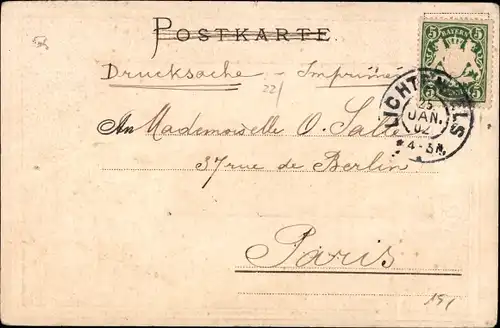 POSTKARTE
5 BAYERN 5
5 5
Drucksache - Imprimé
22/
LICHTENFELS
25
JAN.
02
4-5N.
An Mademoiselle O.
37 rue de Berlin
Paris